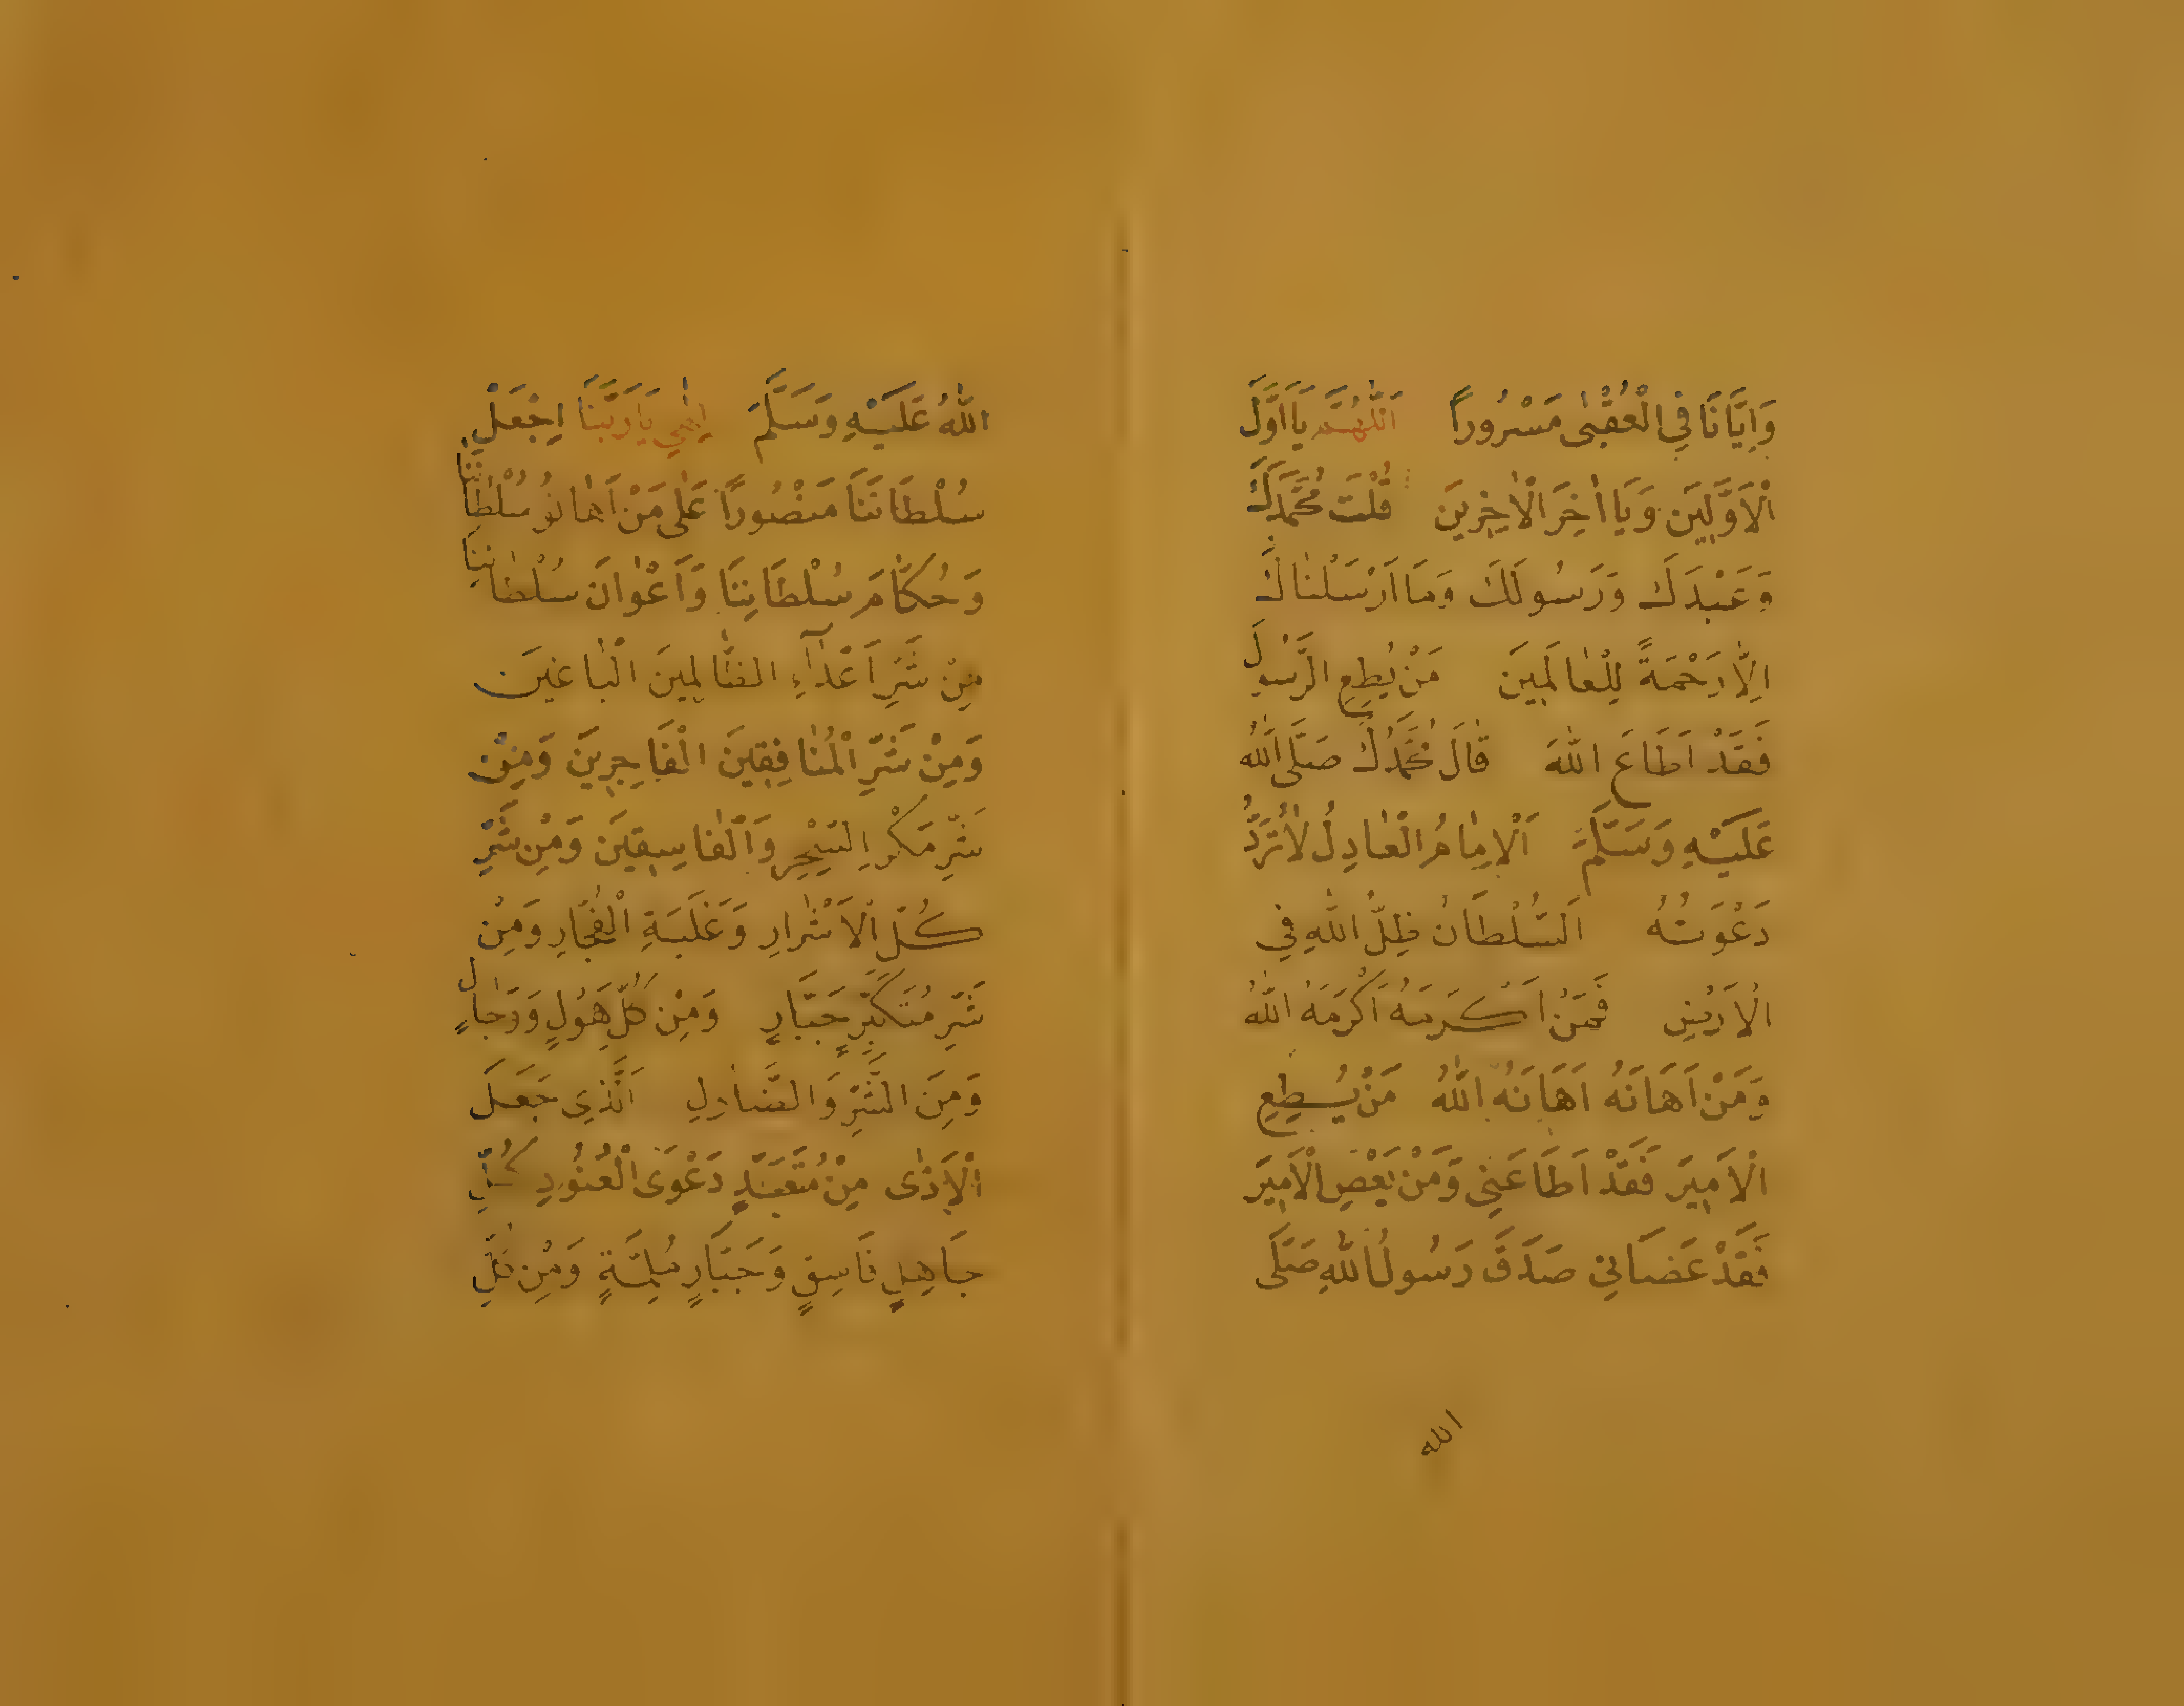 وَاِيَّانَا فِي الْعُقْبٰى مَسْرُورًا اَللّٰهُمَّ يَا اَوَّلَ
الْاَوَّلِينَ وَيَا اٰخِرَ الْاٰخِرِينَ قُلْتَ مُحَمَّدَكَ
وَعَبْدَكَ وَرَسُولَكَ وَمَا اَرْسَلْنَاكَ
اِلَّا رَحْمَةً لِلْعَالَمِينَ مَنْ يُطِعِ الرَّسُولَ
فَقَدْ اَطَاعَ اللّٰهَ قَالَ مُحَمَّدُكَ صَلَّى اللّٰهُ
عَلَيْهِ وَسَلَّمَ اَلْاِمَامُ الْعَادِلُ لَا تُرَدُّ
دَعْوَتُهُ اَلسُّلْطَانُ ظِلُّ اللّٰهِ فِي
الْاَرْضِ فَمَنْ اَكْرَمَهُ اَكْرَمَهُ اللّٰهُ
وَمَنْ اَهَانَهُ اَهَانَهُ اللّٰهُ مَنْ يُطِعِ
الْاَمِيرَ فَقَدْ اَطَاعَنِي وَمَنْ يَعْصِ الْاَمِيرَ
فَقَدْ عَصَانِي صَدَقَ رَسُولُ اللّٰهِ صَلَّى
الله
اللّٰهُ عَلَيْهِ وَسَلَّمَ اِلٰهِي يَا رَبَّنَا اِجْعَلْ
سُلْطَانَنَا مَنْصُورًا عَلٰى مَنْ اَهَانُو سُلْطَانَنَا
وَحُكَّامَ سُلْطَانِنَا وَاَعْوَانَ سُلْطَانِنَا
مِنْ شَرِّ اَعْدَآءِ الظَّالِمِينَ الْبَاغِينَ
وَمِنْ شَرِّ الْمُنَافِقِينَ الْفَاجِرِينَ وَمِنْ
شَرِّ مَكْرِ السِّحْرِ وَالْفَاسِقِينَ وَمِنْ شَرِّ
كُلِّ الْاَشْرَارِ وَغَلَبَةِ الْفُجَّارِ وَمِنْ
شَرِّ مُتَكَبِّرٍ جَبَّارٍ وَمِنْ كُلِّ هَوْلٍ
وَمِنَ الشَّرِّ اَلَّذِى جَعَلَ
الْاَذٰى مِنْ دَعْوَى الْعَنُودِ كُلِّ
جَاهِلٍ فَاسِقٍ وَجَبَّارٍ وَمِنْ كُلِّ